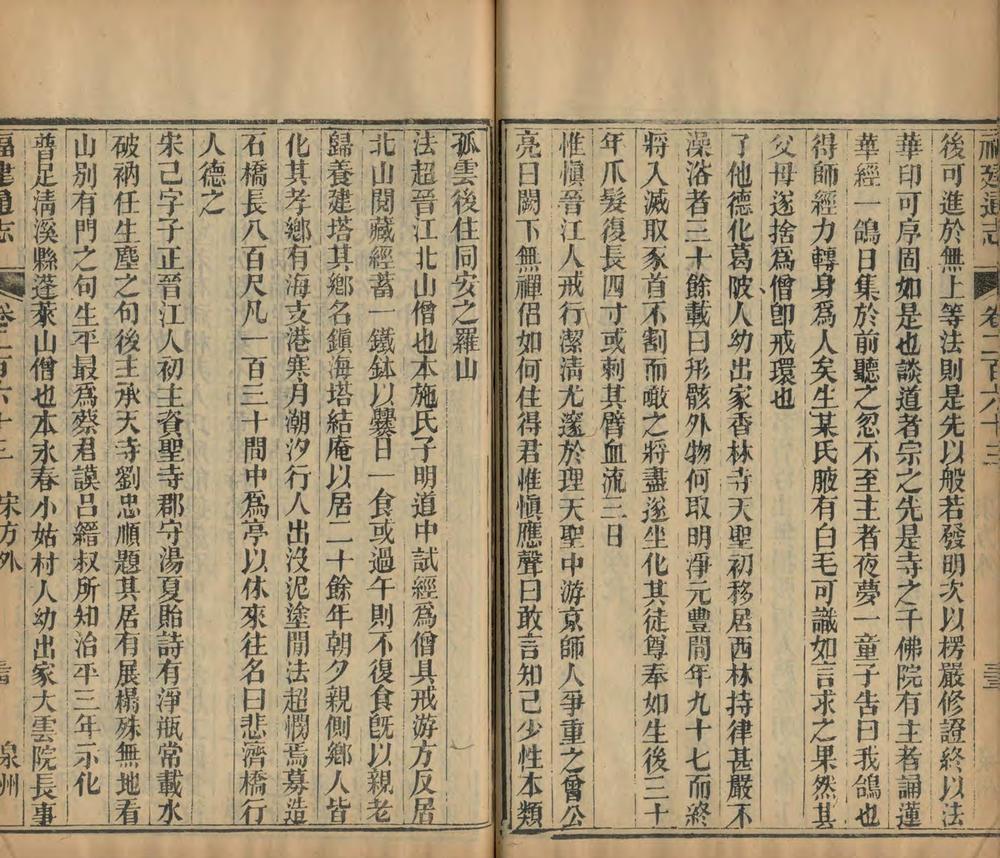 福建通志 卷二百六十三
後可進於無上等法則是先以般若發明次以楞嚴修證終以法
華印可序固如是也談道者宗之先是寺之千佛院有主者誦蓮
華經一鴿日集於前聽之忽不至主者夜夢一童子告曰我鴿也
得師經力轉身爲人矣生某氏腋有白毛可識如言求之果然其
父母遂捨爲僧卽戒環也
了他德化葛陂人幼出家香林寺天聖初移居西林持律甚嚴不
澡浴者三十餘載曰形骸外物何取明淨元豐間年九十七而終
將入滅取冢首不割而噉之將盡遂坐化其徒尊奉如生後三十
年爪髮復長四寸或刺其臂血流三日
惟愼晉江人戒行潔淸尤邃於理天聖中游京師人爭重之曾公
亮曰闕下無禪侶如何住得君惟愼應聲曰敢言知己少性本類
孤雲後住同安之羅山
法超晉江北山僧也本施氏子明道中試經爲僧具戒游方反居
北山閱藏經蓄一鐵鉢以爨日一食或過午則不復食旣以親老
歸養建塔其鄉名鎭海塔結庵以居二十餘年朝夕親側鄉人皆
化其孝鄉有海支港寒月潮汐行人出沒泥塗閒法超憫焉募造
石橋長八百尺凡一百三十間中爲亭以休來往名曰悲濟橋行
人德之
宋己字子正晉江人初主資聖寺郡守湯夏貽詩有淨瓶常載水
破衲任生塵之句後主承天寺劉忠順題其居有展榻殊無地看
山別有門之句生平最爲蔡君謨呂縉叔所知治平三年示化
普足淸溪縣蓬萊山僧也本永春小姑村人幼出家大雲院長事
福建通志 卷二百六十三 宋方外 泉州